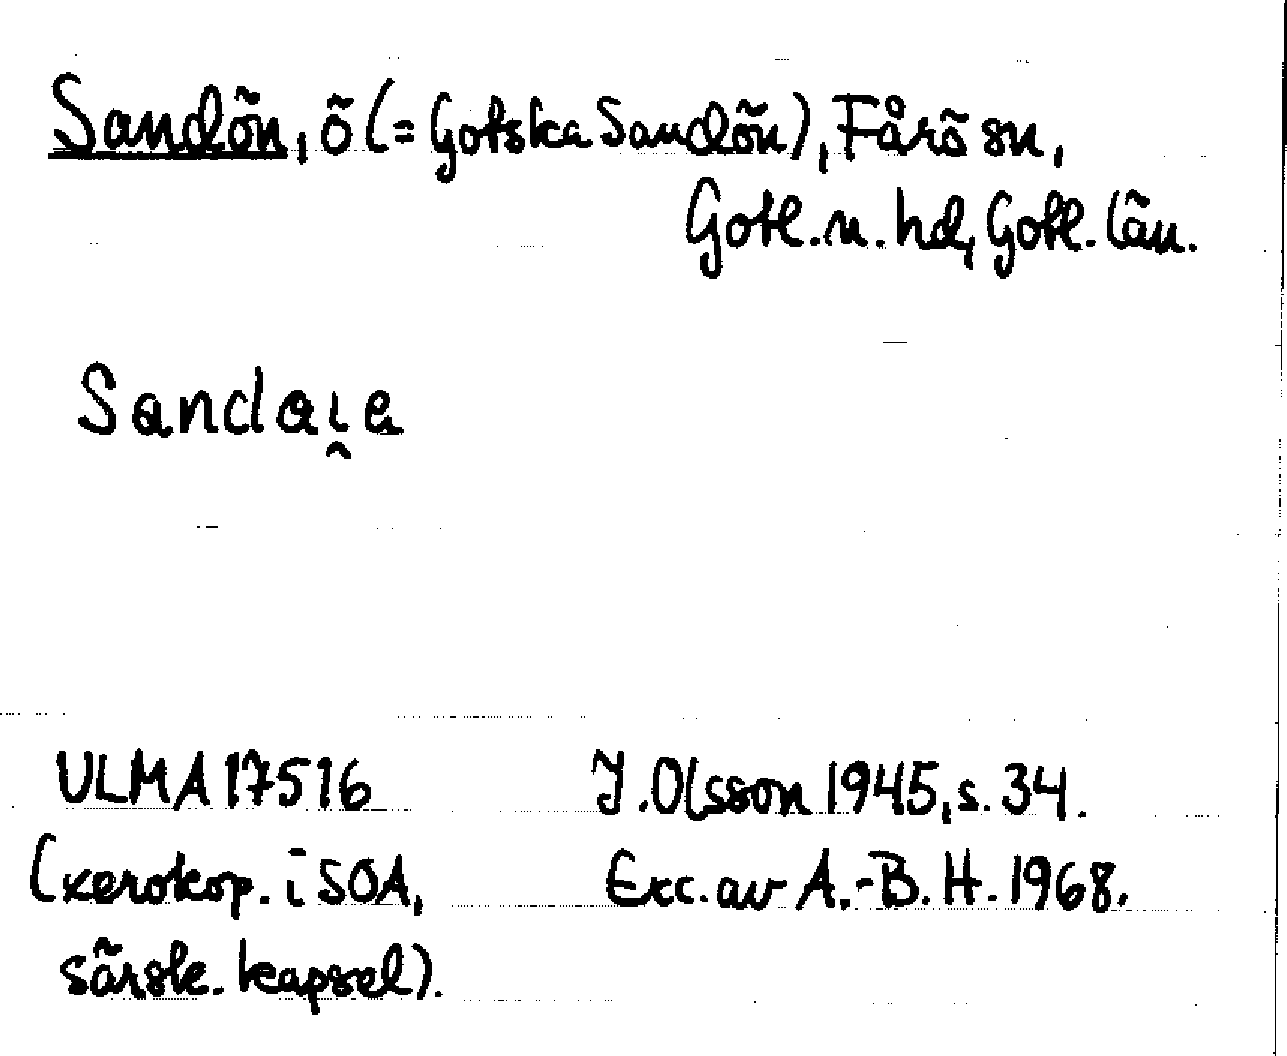 Sandön, ö (= Gotska Sandön), Fårö sn,
Gotl. n. hd, Gotl. län.
Sandaı̯a
ULMA 17516
J. Olsson 1945, s. 34.
(xerokop. i SOA,
Exc. av A.-B. H. 1968.
särsk. kapsel).